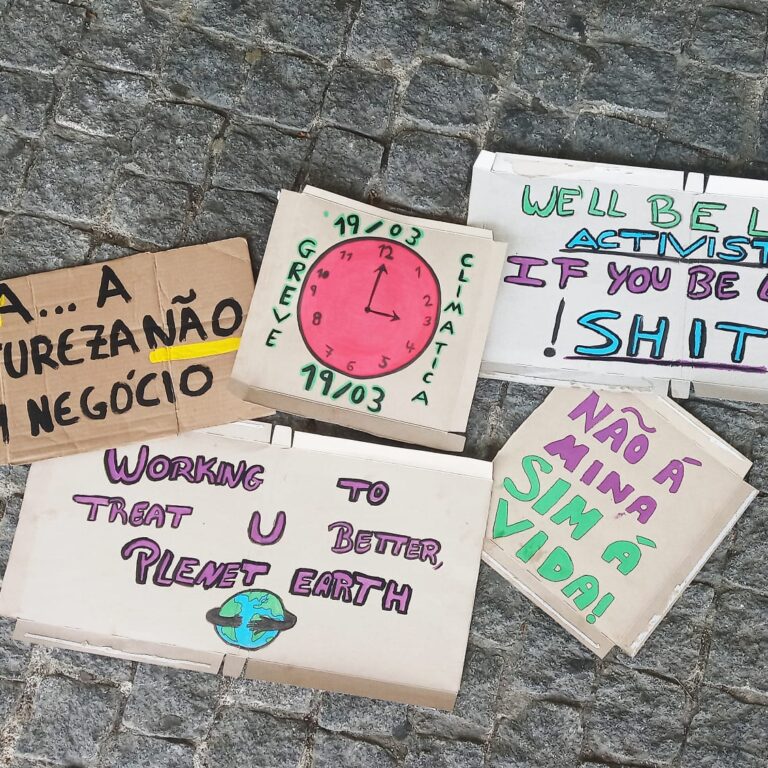 A... A
TUREZA NÃO
NEGÓCIO
19/03
GREVE
CLIMATICA
12
1
2
3
4
5
6
7
8
9
10
11
19/03
WE'LL BE L
ACTIVIST
IF YOU BE
!SHIT
WORKING TO
TREAT U BETTER,
PLENET EARTH
NÃO Á
MINA
SIM Á
VIDA!